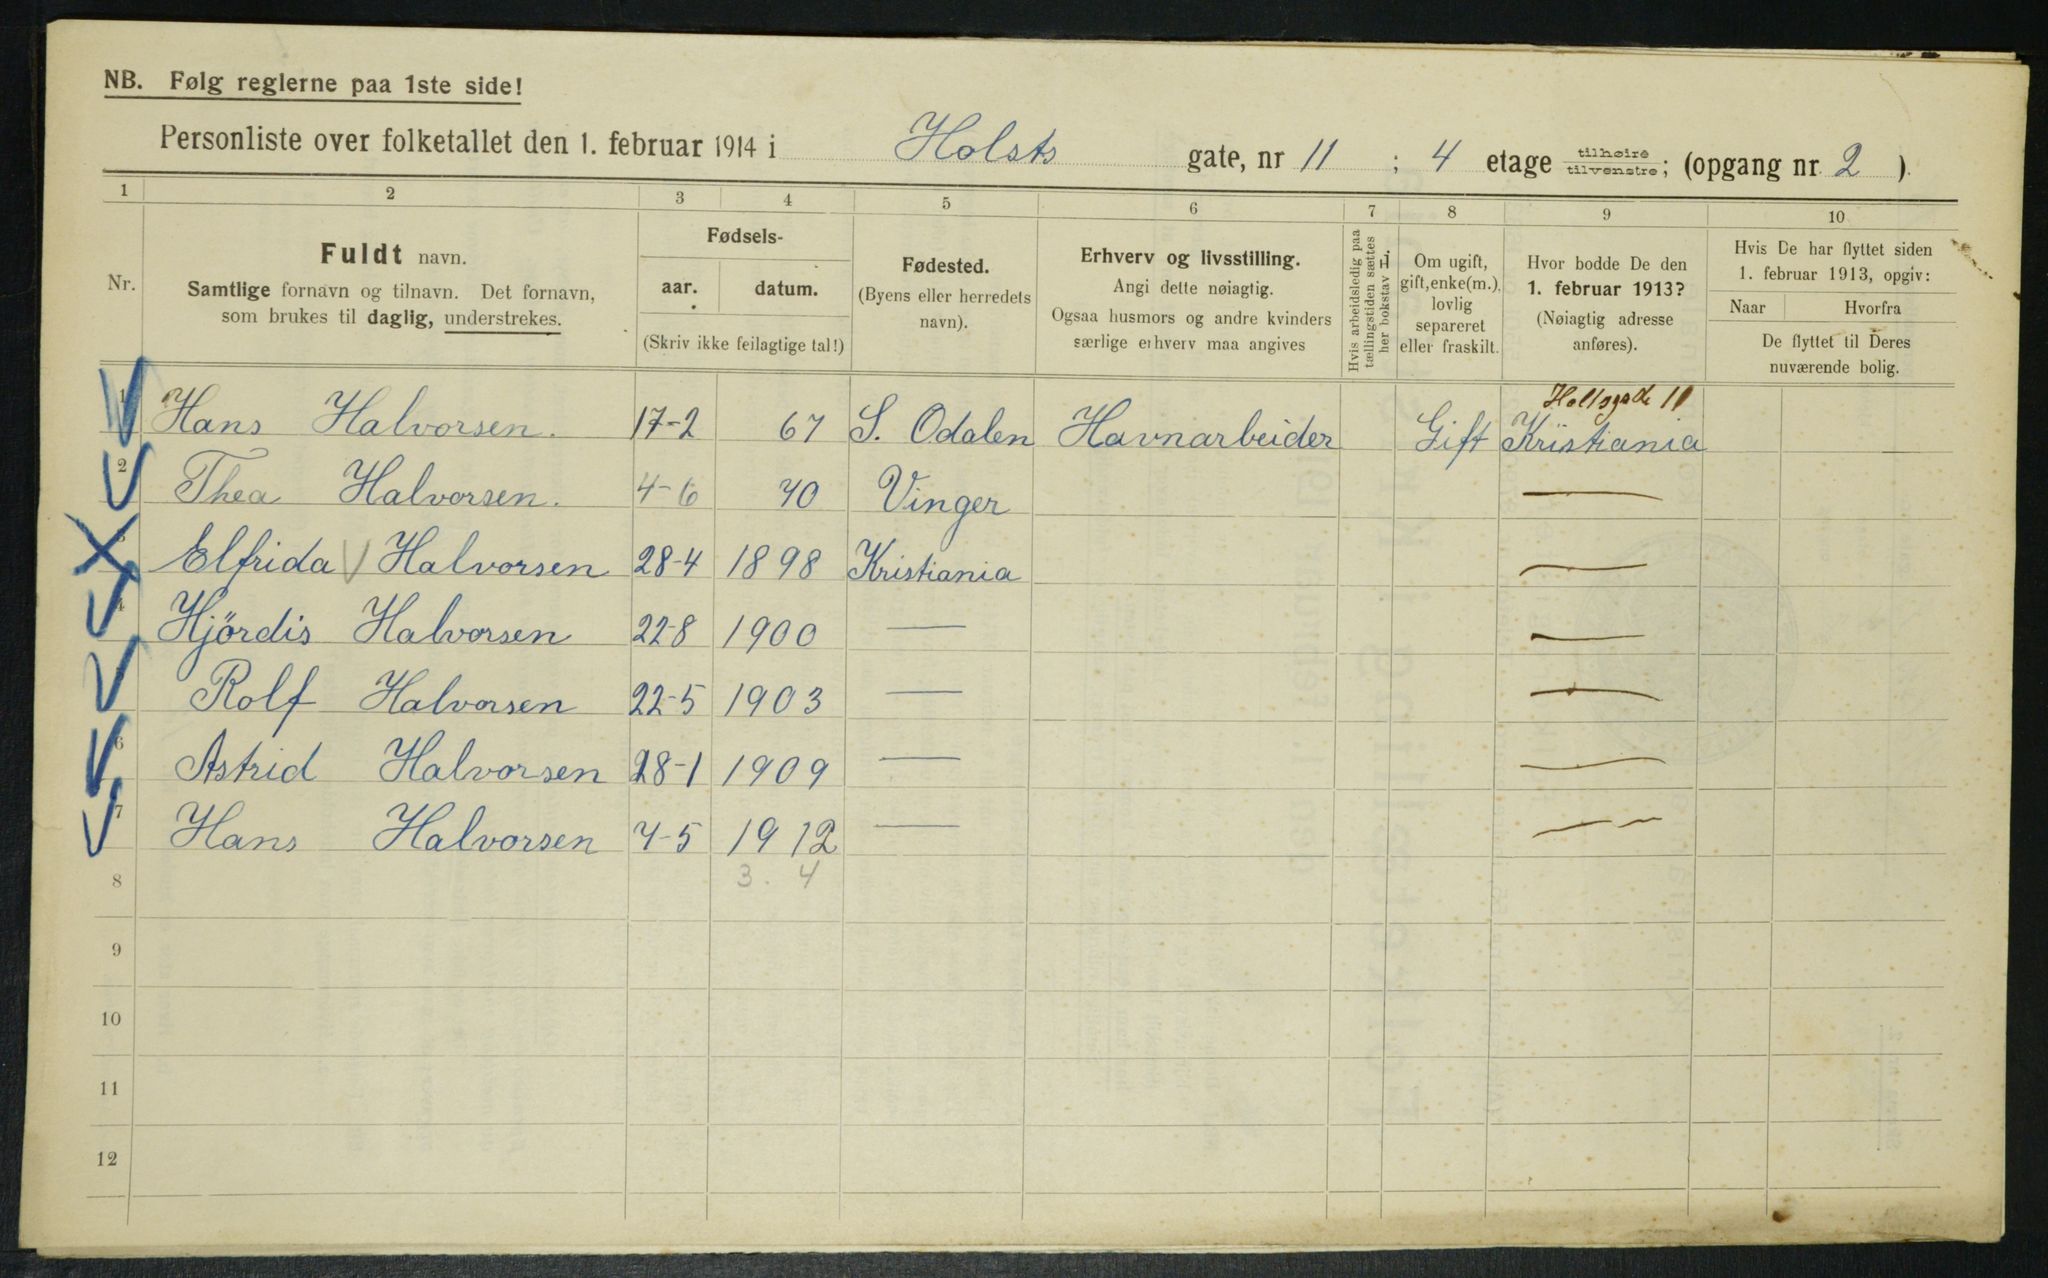 NB. Følg reglerne paa 1ste side!
Personliste over folketallet den 1. februar 1914 i Holsts gate, nr 11 ; 4 etage tilhøire tilvenstre; (opgang nr. 2 ).
1 2 3 4 5 6 7 8 9 10
Nr.
Fuldt navn.
Samtlige fornavn og tilnavn. Det fornavn,
som brukes til daglig, understrekes.
Fødsels-
aar. datum.
(Skriv ikke feilagtige tal!)
Fødested.
(Byens eller herredets
navn).
Erhverv og livsstilling.
Angi dette nøiagtig.
Ogsaa husmors og andre kvinders
særlige erhverv maa angives
Hvis arbeidsledig paa
tællingstiden sættes
her bokstav L.
Om ugift,
gift, enke(m.),
lovlig
separeret
eller fraskilt.
Hvor bodde De den
1. februar 1913?
(Nøiagtig adresse
anføres).
Hvis De har flyttet siden
1. februar 1913, opgiv:
Naar Hvorfra
De flyttet til Deres
nuværende bolig.
Holtsgade 11
1 Hans Halvorsen. 17-2 67 S. Odalen Havnarbeider Gift Kristiania
2 Thea Halvorsen. 4-6 70 Vinger —
3 Elfrida Halvorsen 28-4 1898 Kristiania —
4 Hjördis Halvorsen 22-8 1900 — —
5 Rolf Halvorsen 22-5 1903 — —
6 Astrid Halvorsen 28-1 1909 — —
7 Hans Halvorsen 7-5 1912 — —
3. 4
8
9
10
11
12